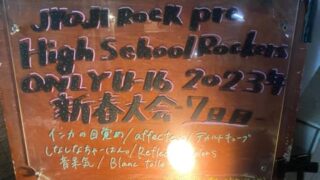 JYOJI ROCK pre
High School Rockers
ONLY U-16 2023年
新春大会 7日日
インカの目覚め/affection/デルトチューブ
しなしなちゃーはん/Reflectors
音楽気/Blanc